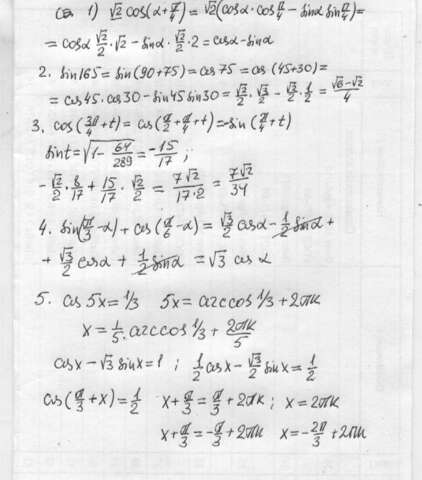 Св. 1) √2 cos(α+π/4) = √2(cosα·cos π/4 − sinα sin π/4) =
= cosα √2/2·√2 − sinα·√2/2·2 = cosα − sinα
2. sin165 = sin(90+75) = cos75 = cos(45+30) =
= cos45·cos30 − sin45 sin30 = √2/2·√3/2 − √2/2·1/2 = (√6−√2)/4
3. cos(3π/4+t) = cos(π/2+π/4+t) = −sin(π/4+t)
sint = √(1−64/289) = −15/17;
−√2/2·8/17 + 15/17·√2/2 = 7√2/(17·2) = 7√2/34
4. sin(π/3−α) + cos(π/6−α) = √3/2 cosα − 1/2 sinα +
+ √3/2 cosα + 1/2 sinα = √3 cosα
5. cos5x = 1/3 5x = arccos 1/3 + 2πk
x = 1/5·arccos 1/3 + 2πk/5
cosx − √3 sinx = 1; 1/2 cosx − √3/2 sinx = 1/2
cos(π/3+x) = 1/2 x+π/3 = π/3 + 2πk; x = 2πk
x+π/3 = −π/3 + 2πk x = −2π/3 + 2πk